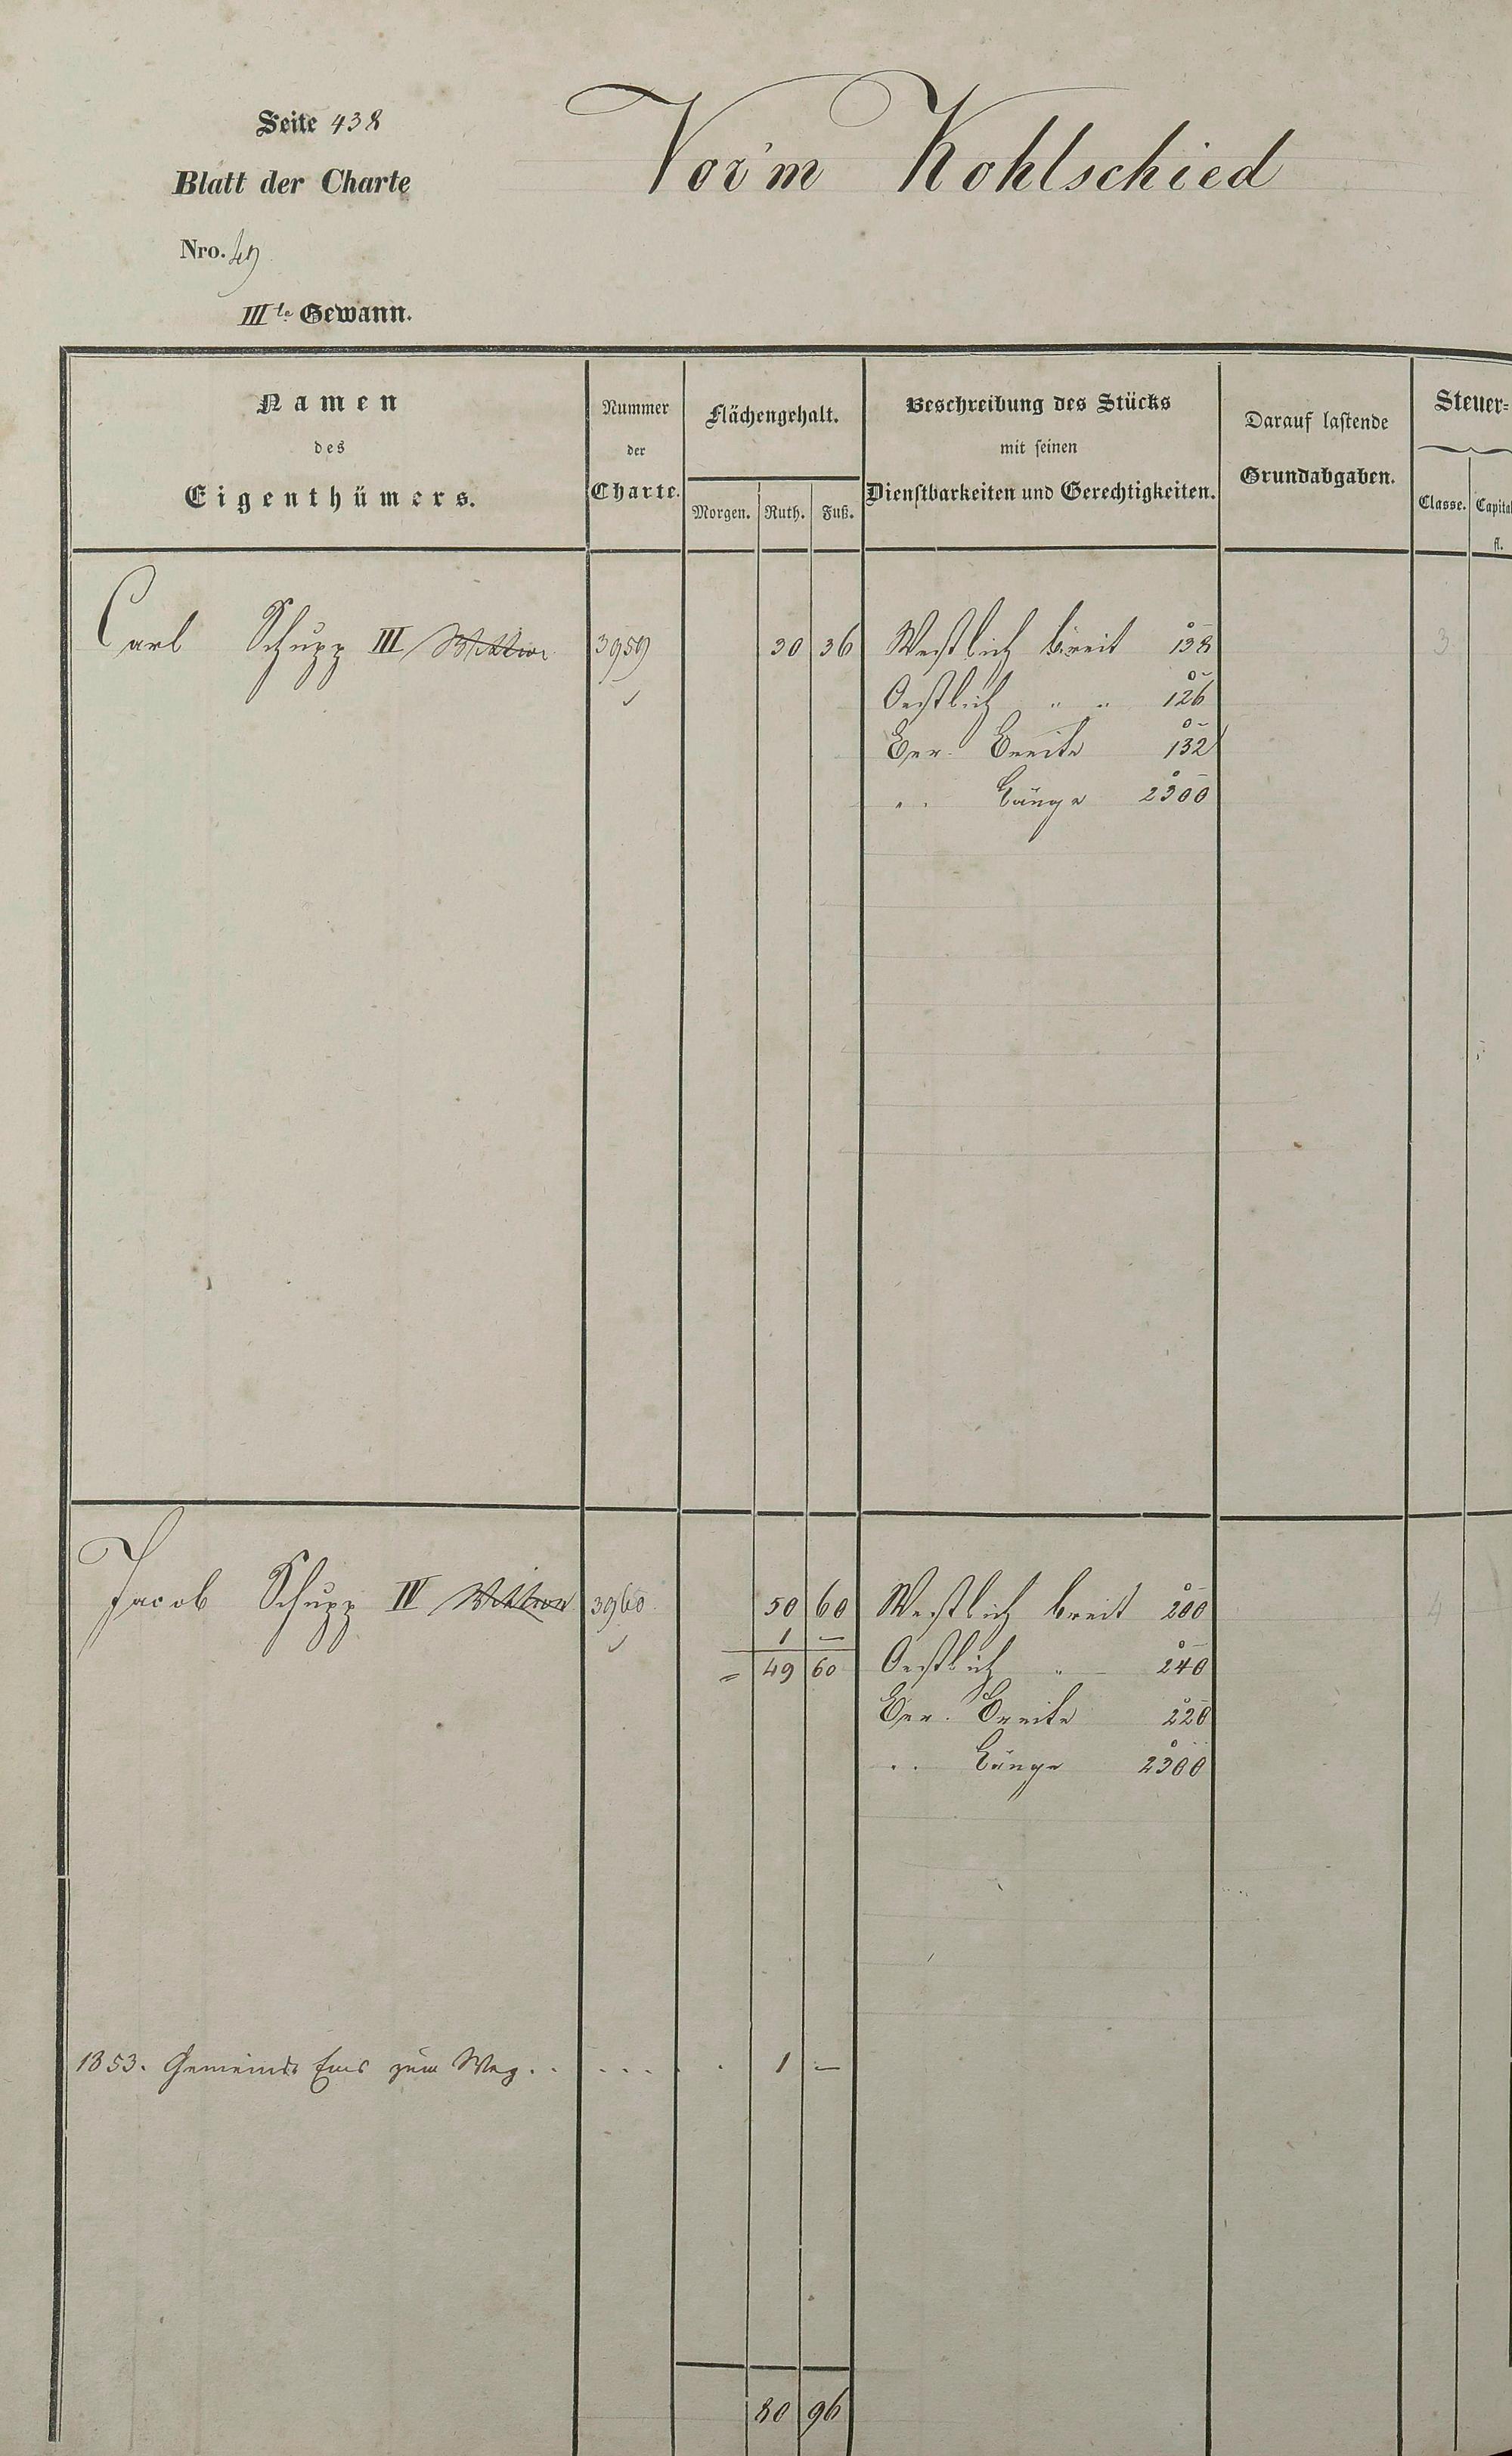 Seite 438
Blatt der Charte
Nro. 49
Vor'm Kohlschied
IIIte Gewann.
Namen des Eigenthümers.
Nummer der Charte.
Flächengehalt.
Morgen. Ruth. Fuß.
Beschreibung des Stücks mit seinen Dienstbarkeiten und Gerechtigkeiten.
Darauf lastende Grundabgaben.
Steuer-
Classe. Capital
fl.
Carl Schupp III 3959 30 36 Westlich breit 138 3
Oestlich " " 126
Ger. Breite 132
" Länge 2300
Jacob Schupp IV 3960 50 60 Westlich breit 200 4
1 —
= 49 60 Oestlich " 240
Ger. Breite 220
" Länge 2300
1853. Gemeinde Ems zum Weg . . . . . . 1 —
80 96